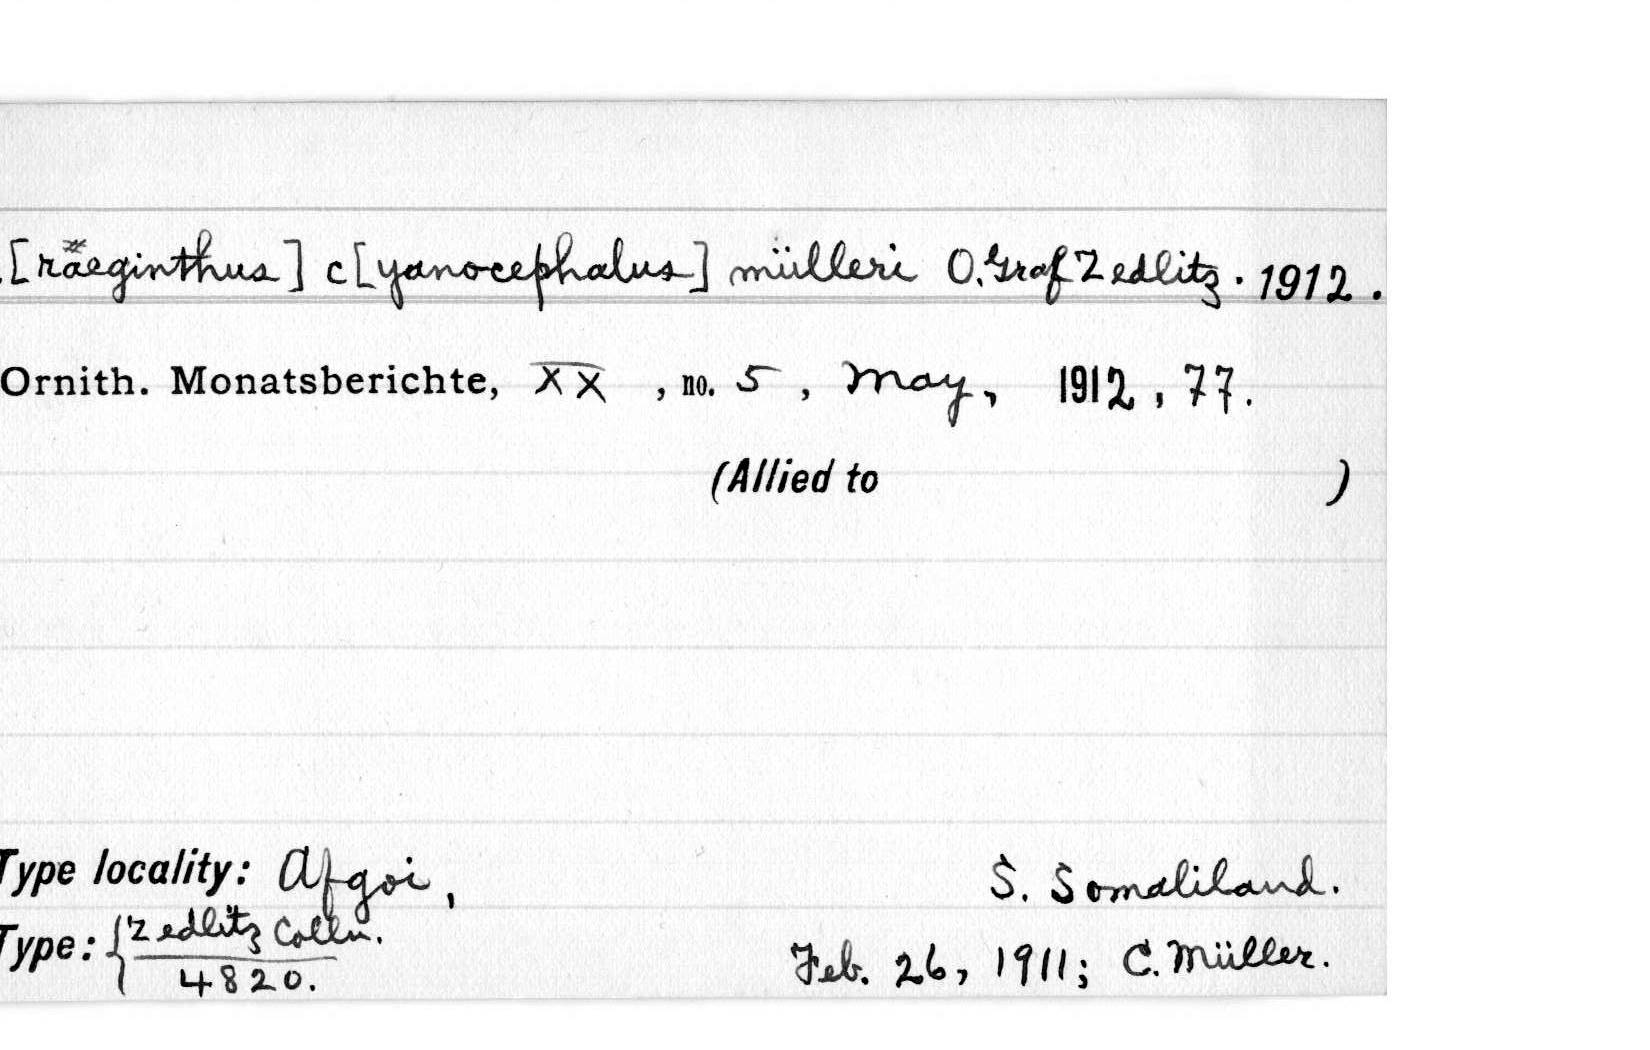 .[räeginthus] c[yanocephalus] mülleri O. Graf Zedlitz. 1912.
Ornith. Monatsberichte, XX, no. 5, May, 1912, 77.
(Allied to )
Type locality: Afgoi, S. Somaliland.
Type: {Zedlitz Colln. Feb. 26, 1911; C. Müller.
4820.